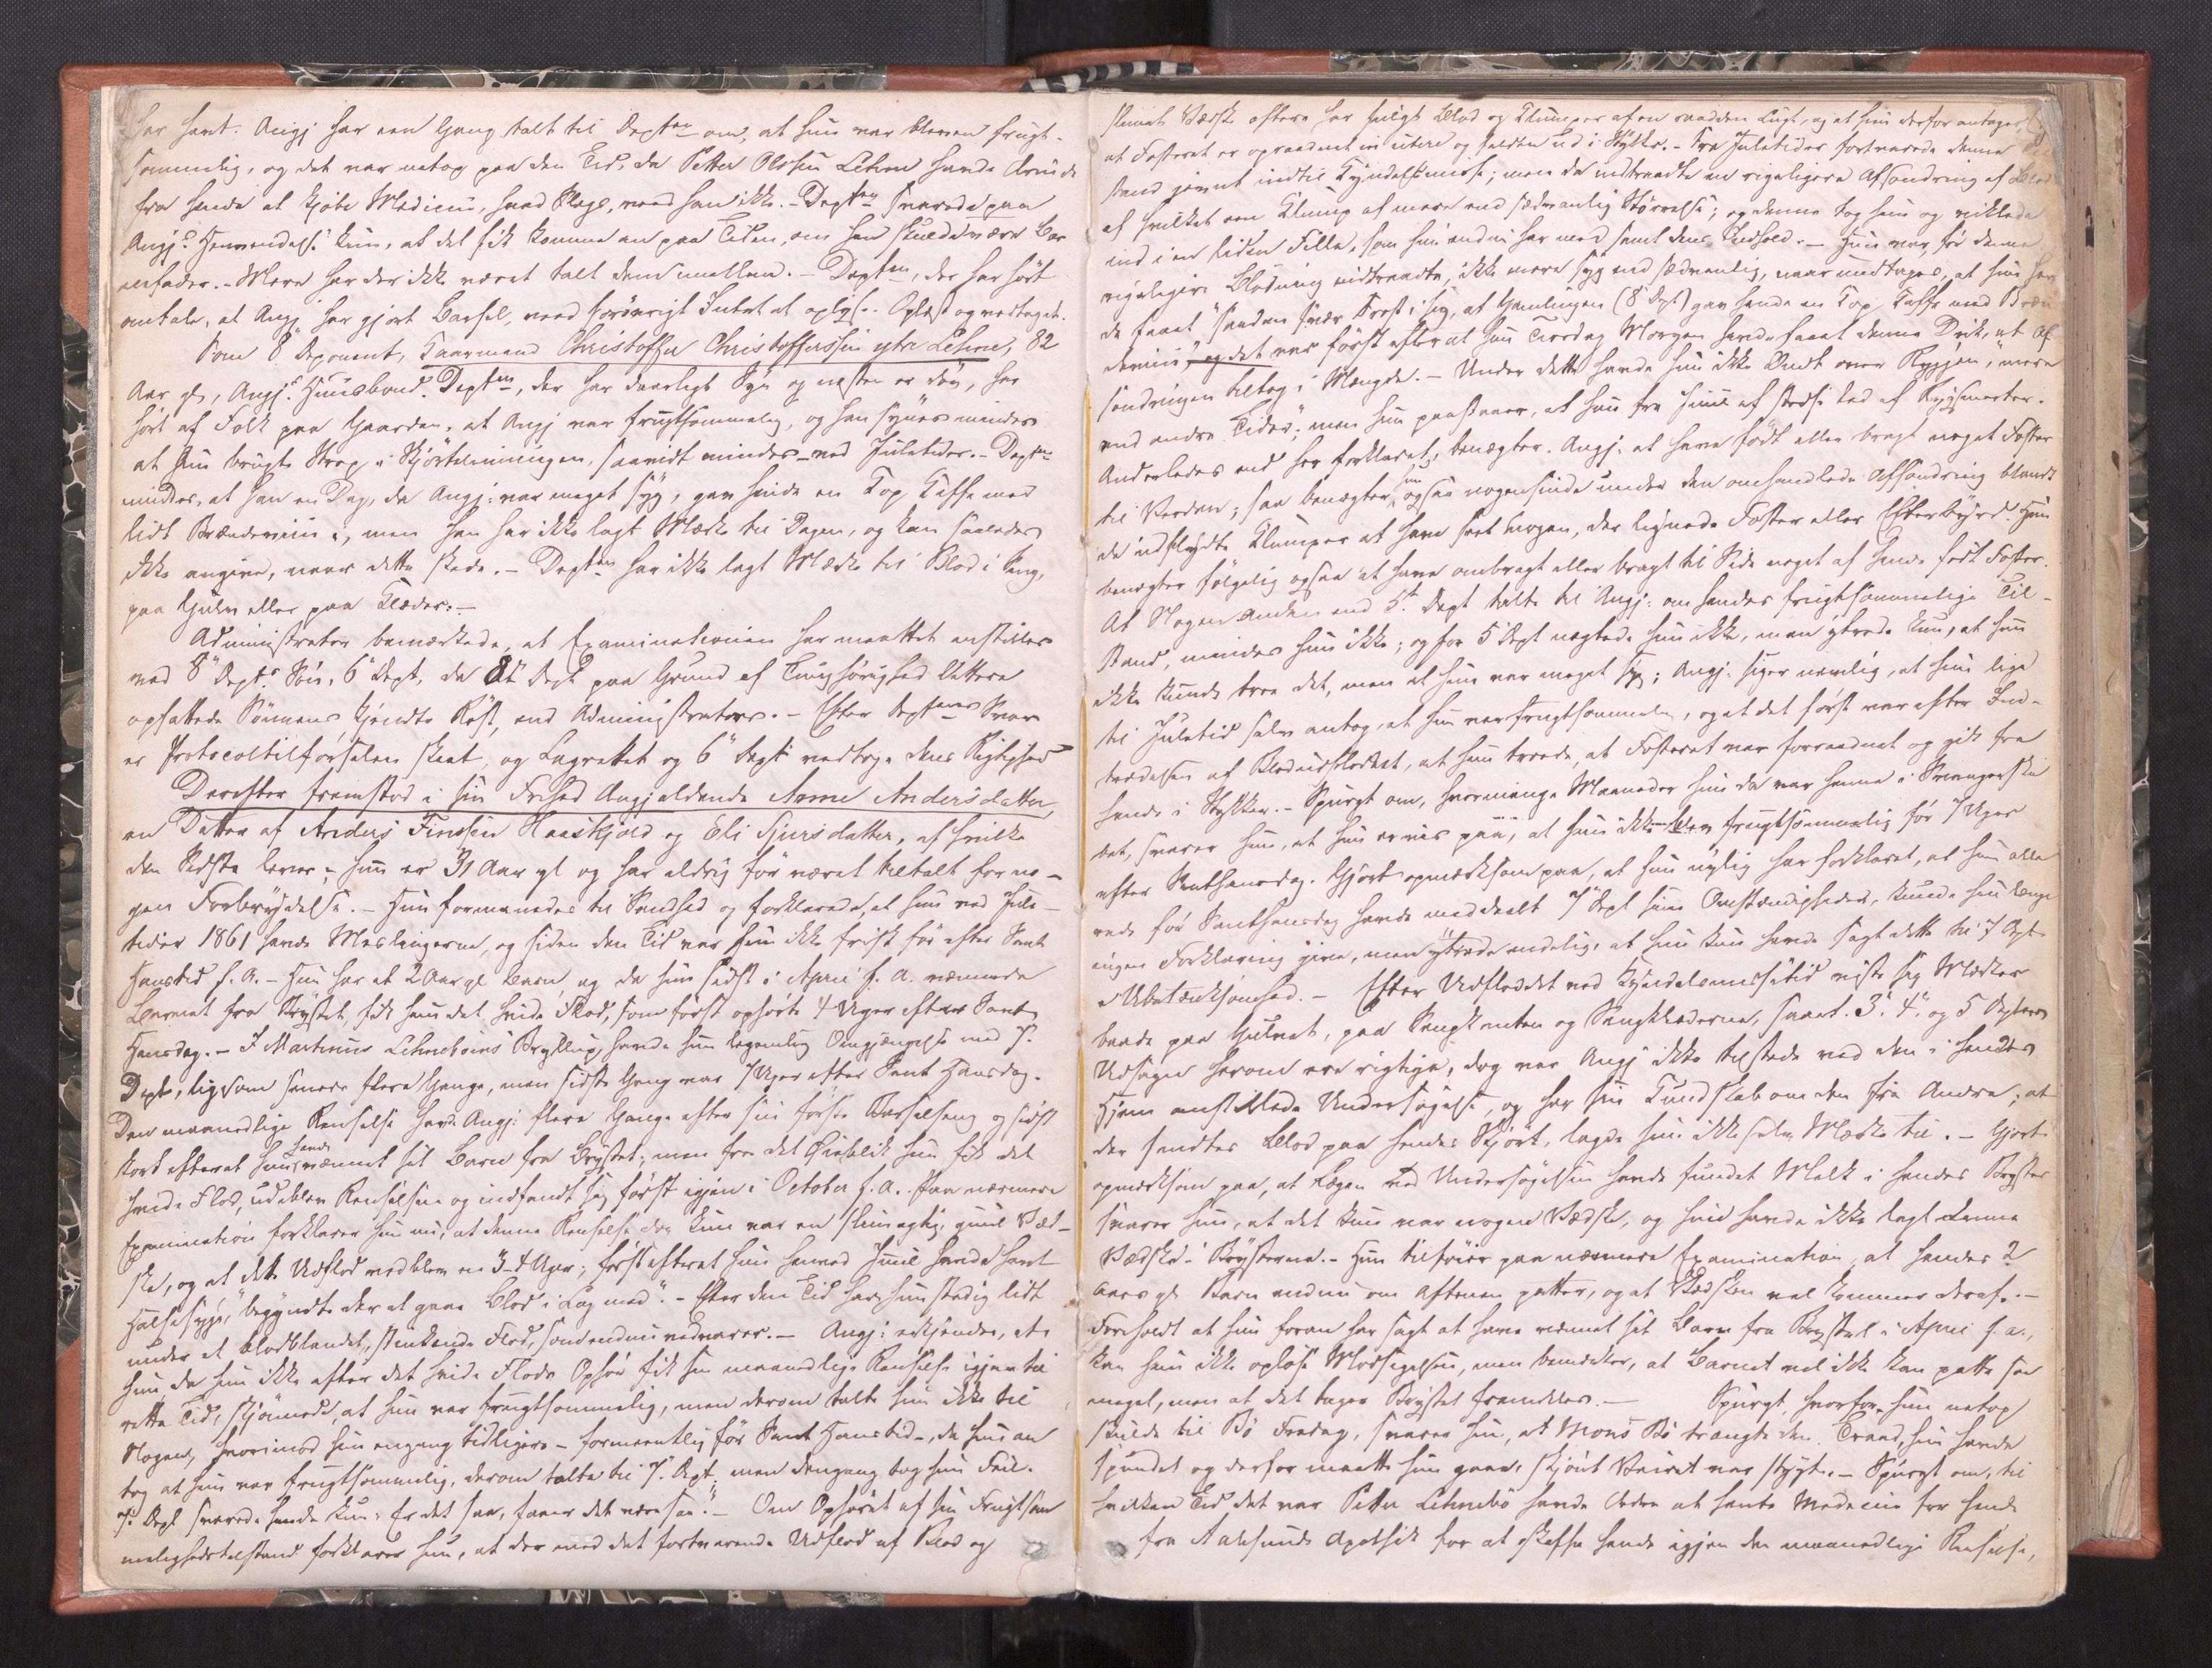 har havt. Angj har een Gang talt til Deptn om, at hun var bleven frugt-
sommelig, og det var netop paa den Tid, da Petter Olsen Lehne havde Ærinde
fra hende at kjøbe Medicin, hvad Slags, veed han ikke. - Deptn svarede paa
Angjs Henvendelse kun, at det fik komme an paa Tiden, om han skulde være Bar
nefader. - Mere har der ikke været talt dem imellem. - Deptn, der har hørt
omtale, at Angj har gjort Barsel, veed forøvrigt Intet at oplyse. Oplæst og vedtaget.
Som 8de Deponent, Kaarmand Christoffer Christoffersen ytre Lehne, 82
Aar gl, Angjs Huusbond. Deptn, der har daarligt Syn og næsten er døv, har
hørt af Folk paa Gaarden, at Angj var frugtsommelig, og han synes mindes
at hun brugte Strop i Skjørtelinningen, saavidt mindes - ved Juletider. - Deptn
mindes, at han en Dag, da Angj: var meget syg, gav hende en Kop Kaffe med
lidt Brændeviin i, men han har ikke lagt Mærke til Dagen, og kan saaledes
ikke angive, naar dette skede. - Deptn har ikke lagt Mærke til Blod i Seng,
paa Gulv eller paa Klæder. -
Administrator bemærkede, at Examinationen har maattet anstilles
ved 8de Depts Søn, 6te Dept, da 8de Dept paa Grund af Tunghørighed lettere
opfattede Sønnens kjendte Røst, end Administrators. - Efter Deptnes Svar
er Protocoltilførselen skeet, og Lagrettet og 6te Dept vedtoge dens Rigtighed
Derefter fremstod i sin Frihed Angjældende Anne Andersdatter,
en Datter af Anders Finssen Haaskjold og Eli Sjursdatter, af hvilke
den Sidste lever; hun er 31 Aar gl og har aldrig før været tiltalt for no-
gen Forbrydelse. - Hun formanedes til Sandhed og forklarede, at hun ved Jule-
tider 1861 havde Meslingerne, og siden den Tid var hun ikke frisk før efter Sanct
Hanstid f. A. - Hun har et 2 Aar gl Barn, og da hun sidst i April f. A. vænnede
Barnet fra Brystet, fik hun det hvide Flod, som først ophørte 4 Uger efter Sanct
Hansdag. - I Martinus Lehnebøens Bryllup havde hun legemlig Omgjængelse med 7de
Dept, ligesom senere flere Gange, men sidste Gang var 7 Uger efter Sanct Hansdag.
Den maanedlige Renselse havde Angj: flere Gange efter sin første Barselseng og sidst
kort efterat hun havde vænnet sit Barn fra Brystet, men fra det Øieblik hun fik det
hvide Flod, udeblev Renselsen og indfandt sig først igjen i October f. A. Paa nærmere
Examination forklarer hun nu, at denne Renselse dog kun var en sliimagtig, guul Væd-
ske, og at dette Udflod vedblev en 3-4 Uger; først efterat hun henved Juul havde havt
Halsesyge, "begyndte der at gaae Blod i Lag med". - Efter den Tid har hun stadig lidt
under et blodblandet, stinkende Flod, som endnu vedvarer. - Angj: erkjender, at
hun, da hun ikke efter det hvide Flods Ophør fik sin maanedlige Renselse igjen til
rette Tid, skjønnede, at hun var frugtsommelig, men derom talte hun ikke til
Nogen, hvorimod hun engang tidligere - formeentlig før Sanct Hanstid -, da hun an
tog at hun var frugtsommelig, derom talte til 7de Dept, men dengang tog hun Feil.
7de Dept svarede hende kun: "Er det saa, faaer det være saa." - Om Ophøret af sin Frugtsom
melighedstilstand forklarer hun, at der med det fortvarende Udflod af Blod og
sliimet Vædske oftere har fulgt Blod og Klumper af en raadden Lugt, og at hun derfor antager,
at Fosteret er opraadnet in utero og falden ud i Stykker. - Fra Juletider fortvarede denne
stand jevnt indtil Kyndelsmisse; men da indtraadte en rigeligere Afsondring af Blod
af hvilket een Klump af mere end sædvanlig Størrelse; og denne tog hun og viklede
ind i en liden Fille, som hun endnu har med samt dens Indhold. - Hun var, før denne
rigeligere Blødning indtraadte, ikke mere syg end sædvanlig, naar undtages, at hun har
da faaet "saadan svær Frost i sig, at Gamlingen (8de Dept) gav hende en Kop Kaffe med Bræn
deviin", og det var først efter at hun Tirsdag Morgen havde faaet denne Drik, at Af
sondringen tiltog i Mængde. - Under dette havde hun ikke Ondt over Ryggen, "mere
end andre Tider"; men hun paastaaer, at hun fra Juul af stedse led af Rygsmerter.
Anderledes end her forklaret, benægter Angj. at have født eller bragt noget Foster
til Verden; saa benægter hun ogsaa nogensinde under den omhandlede Afsondring blandt
de udflydte Klumper at have seet nogen, der lignede Foster eller Efterbyrd. Hun
benægter følgelig ogsaa at have ombragt eller bragt til Side noget af hende født Foster.
At Nogen anden end 5te Dept talte til Angj: om hendes frugtsommelige Til-
stand, mindes hun ikke; og for 5 Dept nægtede hun ikke, men ytrede kun, at hun
ikke kunde troe det, men at hun var meget syg; Angj: siger nemlig, at hun lige
til Juletid selv antog, at hun var frugtsommelig, og at det først var efter Ind-
trædelsen af Blodudfloddet, at hun troede, at Fosteret var forraadnet og gik fra
hende i Stykker. - Spurgt om, hvormange Maaneder hun da var henne i Svangerska
bet, svarer hun, at hun er vis paa, at hun ikke blev frugtsommelig før 7 Uger
efter Sancthansdag. Gjort opmærksom paa, at hun nylig har forklaret, at hun alle
rede før Sancthansdag havde meddeelt 7de Dept sine Omstændigheder, kunde hun længe
ingen Forklaring give, men ytrede endelig, at hun kun havde sagt dette til 7 Dept
i Ubetænksomhed. - Efter Udfloddet ved Kyndelsmissetid viste sig Mærker
baade paa Gulvet, paa Sengkanten og Sengklæderne, samt. 3de 4de og 5 Deptnes
Udsagn herom ere rigtige, dog var Angj ikke tilstede ved den i hendes
Hjem anstillede Undersøgelse, og har sin Kundskab om den fra Andre; at
der fandtes Blod paa hendes Skjørt, lagde hun ikke selv Mærke til. - Gjort
opmærksom paa, at Lægen ved Undersøgelsen havde fundet Melk i hendes Bryster
svarer hun, at det kun var nogen Vædske, og hun havde ikke lagt denne
Vædske i Brysterne. - Hun tilføier paa nærmere Examination, at hendes 2
Aars gl Barn endnu om Aftenen patter, og at Vædsken vel kommer deraf. -
Foreholdt at hun foran har sagt at have vænnet sit Barn fra Brystet i April f. a.,
kan hun ikke opløse Modsigelsen, men bemærker, at Barnet vel ikke kan patte saa
meget, men at det tager Brystet fremdeles. - Spurgt, hvorfor hun netop
skulde til Bø Fredag, svarer hun, at Mons Bø trængte den Traad, hun havde
spundet og derfor maatte hun gaae, skjønt Veiret var stygt. - Spurgt om, til
hvilken Tid det var Petter Lehnebø havde Ordre at hente Medecin for hende
fra Aalesunds Apothek for at skaffe hende igjen den maanedlige Renselse,